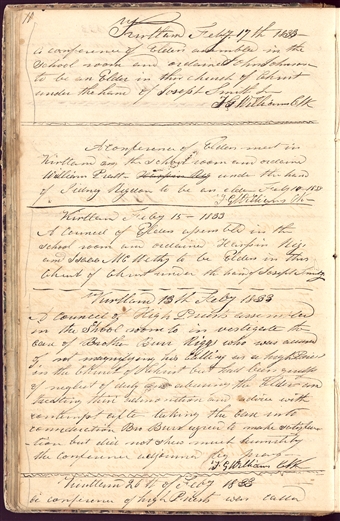 10
Kirtland Feby 17th 1833
a conference of Elders assembled in the
School room and ordained John Johnson
to be an Elder in this church of Christ
under the hand of Joseph Smith Jr
F G Williams Clk
A conference of Elders meet in
Kirtland in the School room and ordain
William Pratt under the hand
of Sidney Rigdon to be an elder Feby
F G Williams Clk
Kirtland Feby 15 - 1833
A Council of Elders assembled in the
School room and ordained Harpin Rig
and Isaac McWithy to be Elders in this
Church of Christ under the hand of Joseph Smith
Kirtland 13th Feby 1833
A council of High Priests assembled
in the School room to investigate the
case of Brother Burr Riggs who was accused
of not magnifying his calling as a high Priest
in the Church of Christ but had been guilty
of neglect of duty of abusing the Elders in
treating their admonition and advice with
contempt after taking the case into
consideration Bro Burr agreed to make satisfac
tion but did not show much humility
the conference adjourned by prayer
F G Williams Clk
Kirtland 26th of Feby 1833
a conference of high Priests was called